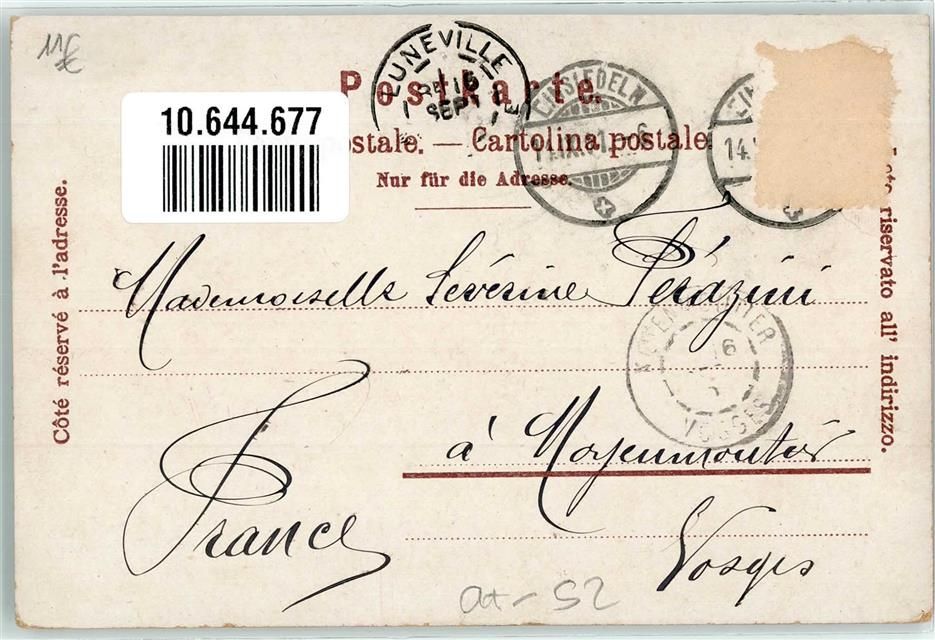 11€
LUNEVILLE
16
SEPT
Postkarte.
10.644.677
postale. — Cartolina postale.
EINSIEDELN
14
Nur für die Adresse.
Côté réservé à l'adresse.
riservato all' indirizzo.
Mademoiselle Sévérine Perazini
MOYENMOUTIER
16
VOSGES
à Moyenmoutier
France
Vosges
at - S2